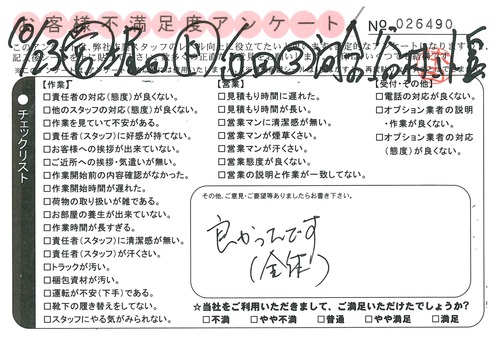 お客様不満足度アンケート
No. 026490
チェックリスト
【作業】
□責任者の対応(態度)が良くない。
□他のスタッフの対応(態度)が良くない。
□作業を見ていて不安がある。
□責任者(スタッフ)に好感が持てない。
□お客様への挨拶が出来ていない。
□ご近所への挨拶・気遣いが無い。
□作業開始前の内容確認がなかった。
□作業開始時間が遅れた。
□荷物の取り扱いが雑である。
□お部屋の養生が出来ていない。
□作業時間が長すぎる。
□責任者(スタッフ)に清潔感が無い。
□責任者(スタッフ)が汗くさい。
□トラックが汚い。
□梱包資材が汚い。
□運転が不安(下手)である。
□靴下の履き替えをしてない。
□スタッフにやる気がみられない。
【営業】
□見積もり時間に遅れた。
□見積もり時間が長い。
□営業マンに清潔感が無い。
□営業マンが煙草くさい。
□営業マンが汗くさい。
□営業態度が良くない。
□営業の説明と作業が一致してない。
【受付・その他】
□電話の対応が良くない。
□オプション業者の説明
・作業が良くない。
□オプション業者の対応
(態度)が良くない。
その他、ご意見・ご要望等ありましたらお書き下さい。
良かったです
(全体)
☆当社をご利用いただきまして、ご満足いただけたでしょうか?
□不満 □やや不満 □普通 □やや満足 □満足